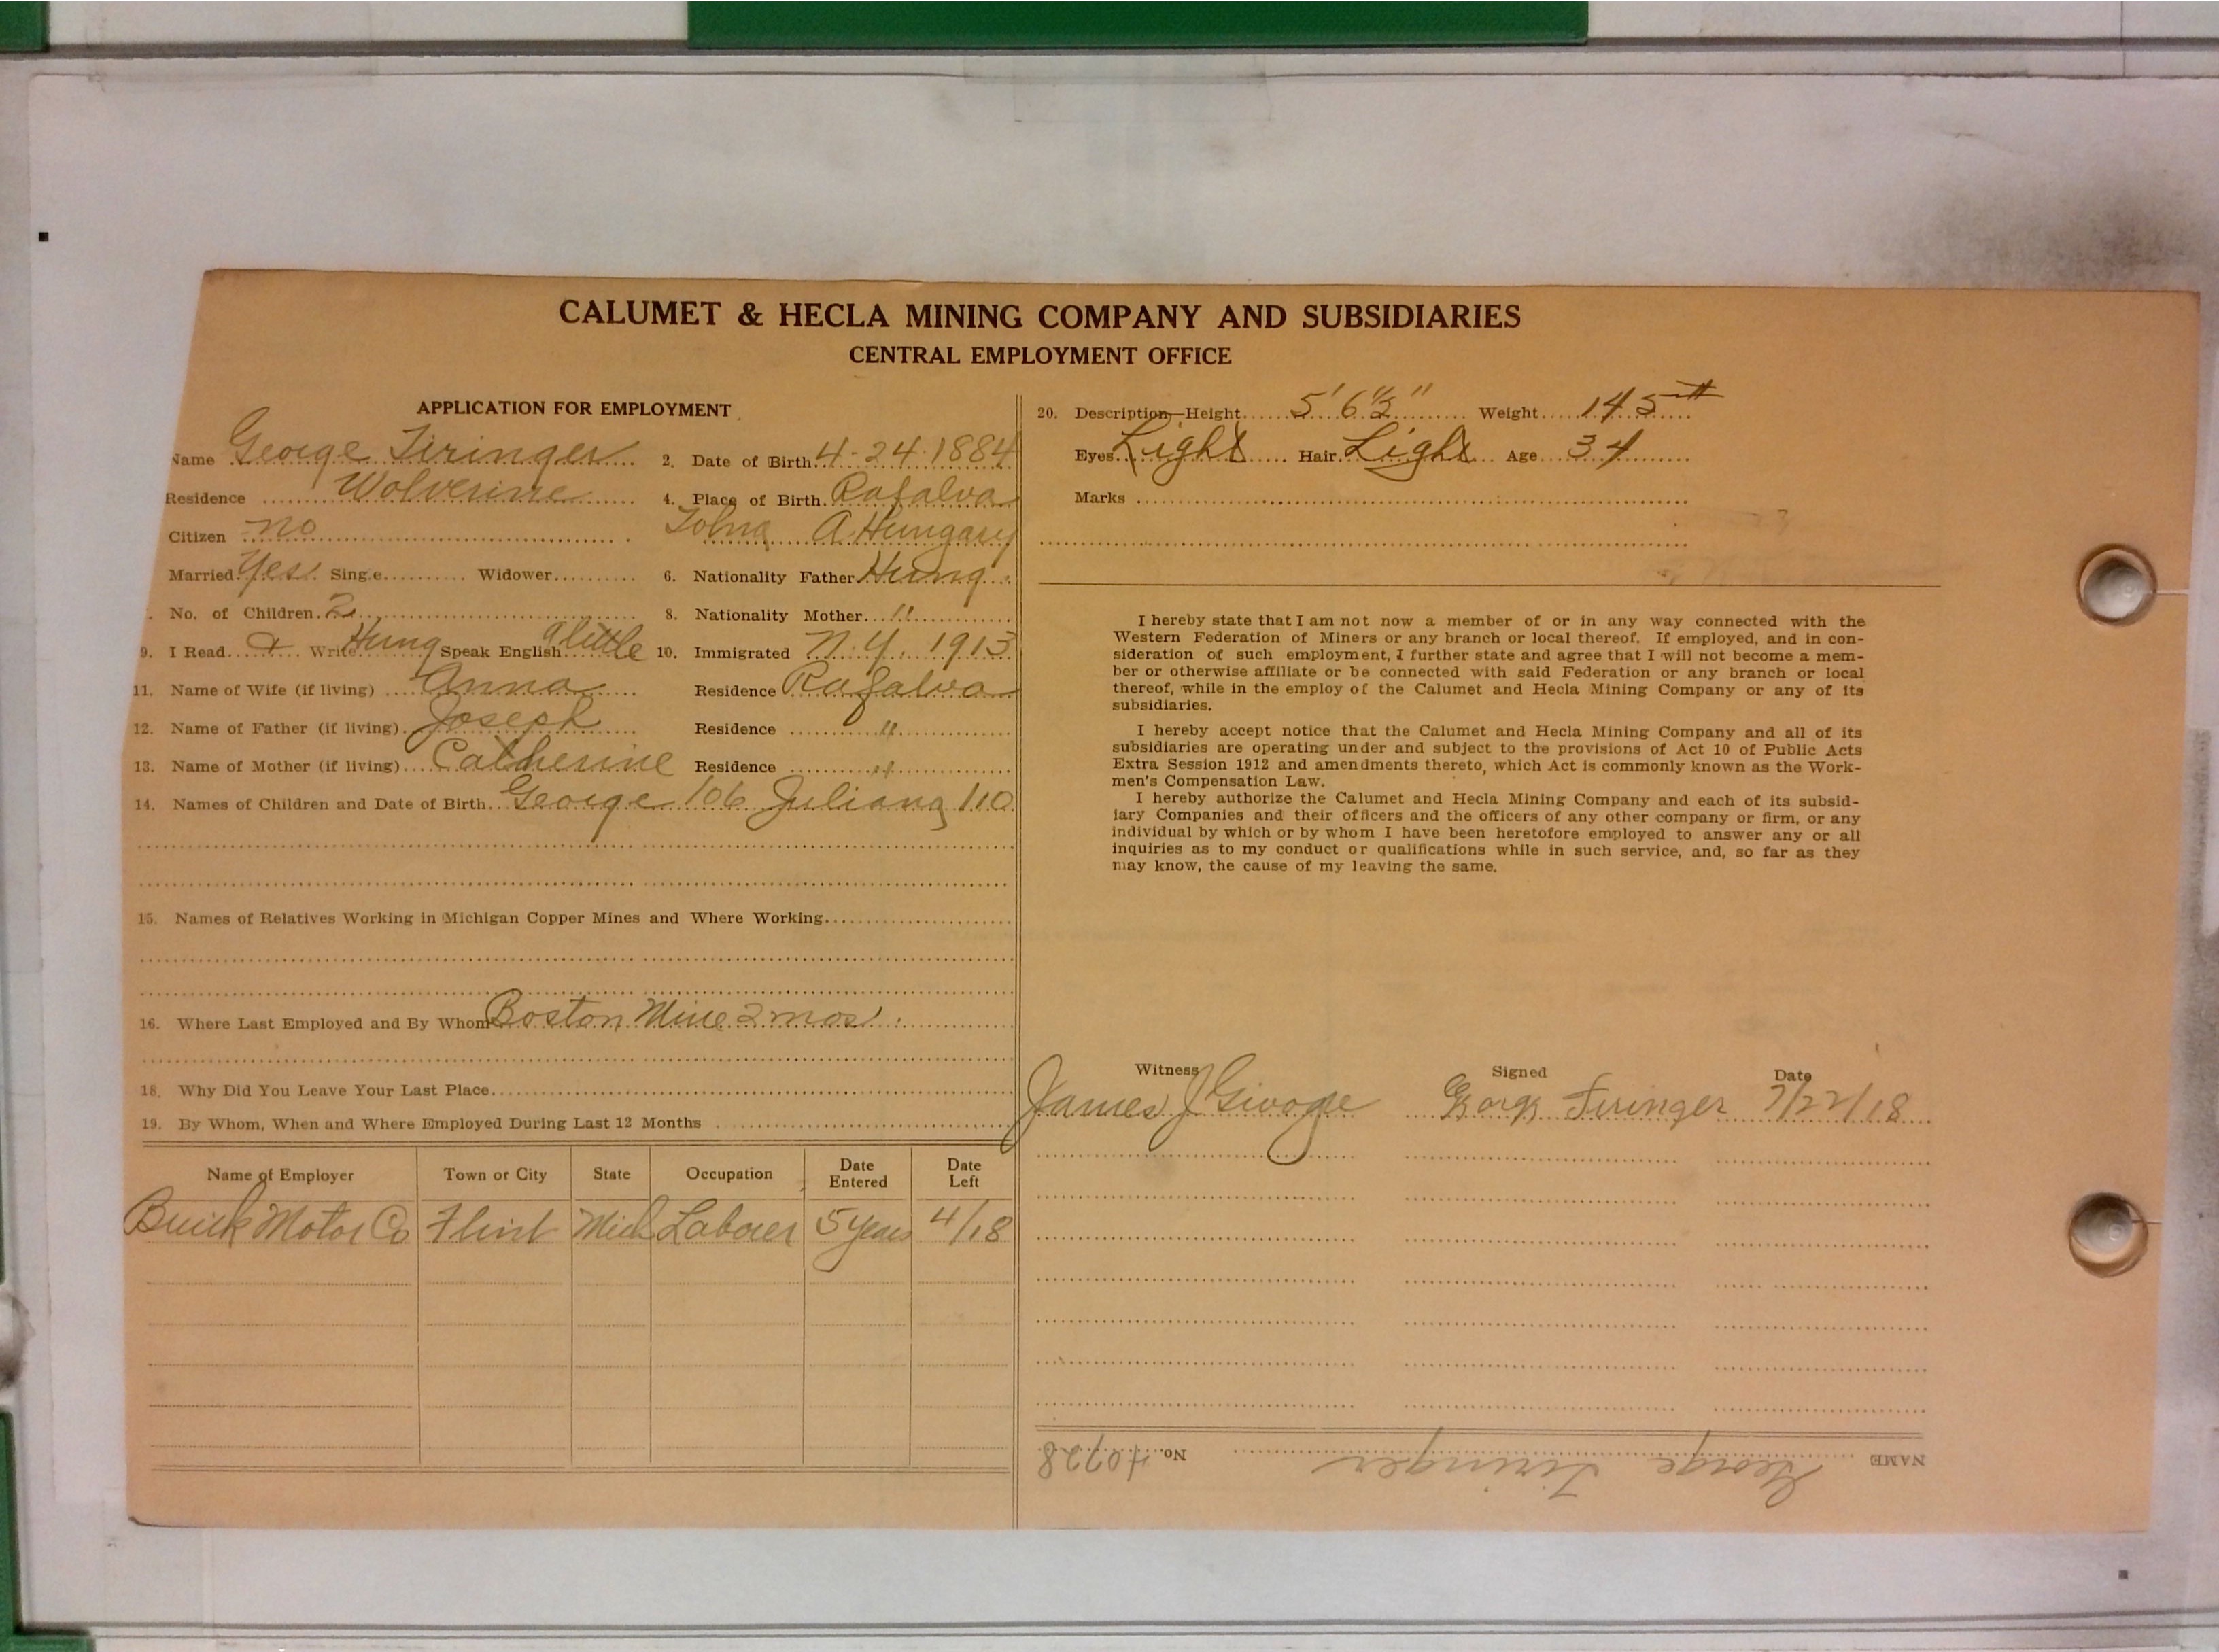 CALUMET & HECLA MINING COMPANY AND SUBSIDIARIES
CENTRAL EMPLOYMENT OFFICE
APPLICATION FOR EMPLOYMENT
Name George Tiringer 2. Date of Birth 4-24 1884
Residence Wolverine 4. Place of Birth Rafalva
Citizen no Tolna A. Hungary
Married Yes Sing.e Widower 6. Nationality Father Hung.
No. of Children 2 8. Nationality Mother "
9. I Read & Write Hung Speak English a little 10. Immigrated N.Y. 1913
11. Name of Wife (if living) Anna Residence Rafalva
12. Name of Father (if living) Joseph Residence "
13. Name of Mother (if living) Catherine Residence "
14. Names of Children and Date of Birth George 106 Juliana 110
15. Names of Relatives Working in Michigan Copper Mines and Where Working
16. Where Last Employed and By Whom Boston Mine 2 mos.
18. Why Did You Leave Your Last Place
19. By Whom, When and Where Employed During Last 12 Months
Name of Employer Town or City State Occupation Date Entered Date Left
Buick Motor Co Flint Mich Laborer 5 years 4/18
20. Description—Height 5' 6 1/2" Weight 145 #
Eyes Light Hair Light Age 34
Marks
I hereby state that I am not now a member of or in any way connected with the
Western Federation of Miners or any branch or local thereof. If employed, and in con-
sideration of such employment, I further state and agree that I will not become a mem-
ber or otherwise affiliate or be connected with said Federation or any branch or local
thereof, while in the employ of the Calumet and Hecla Mining Company or any of its
subsidiaries.
I hereby accept notice that the Calumet and Hecla Mining Company and all of its
subsidiaries are operating under and subject to the provisions of Act 10 of Public Acts
Extra Session 1912 and amendments thereto, which Act is commonly known as the Work-
men's Compensation Law.
I hereby authorize the Calumet and Hecla Mining Company and each of its subsid-
iary Companies and their officers and the officers of any other company or firm, or any
individual by which or by whom I have been heretofore employed to answer any or all
inquiries as to my conduct or qualifications while in such service, and, so far as they
may know, the cause of my leaving the same.
Witness Signed Date
James J Tiringer 7/22/18
NAME George Tiringer No. 40728